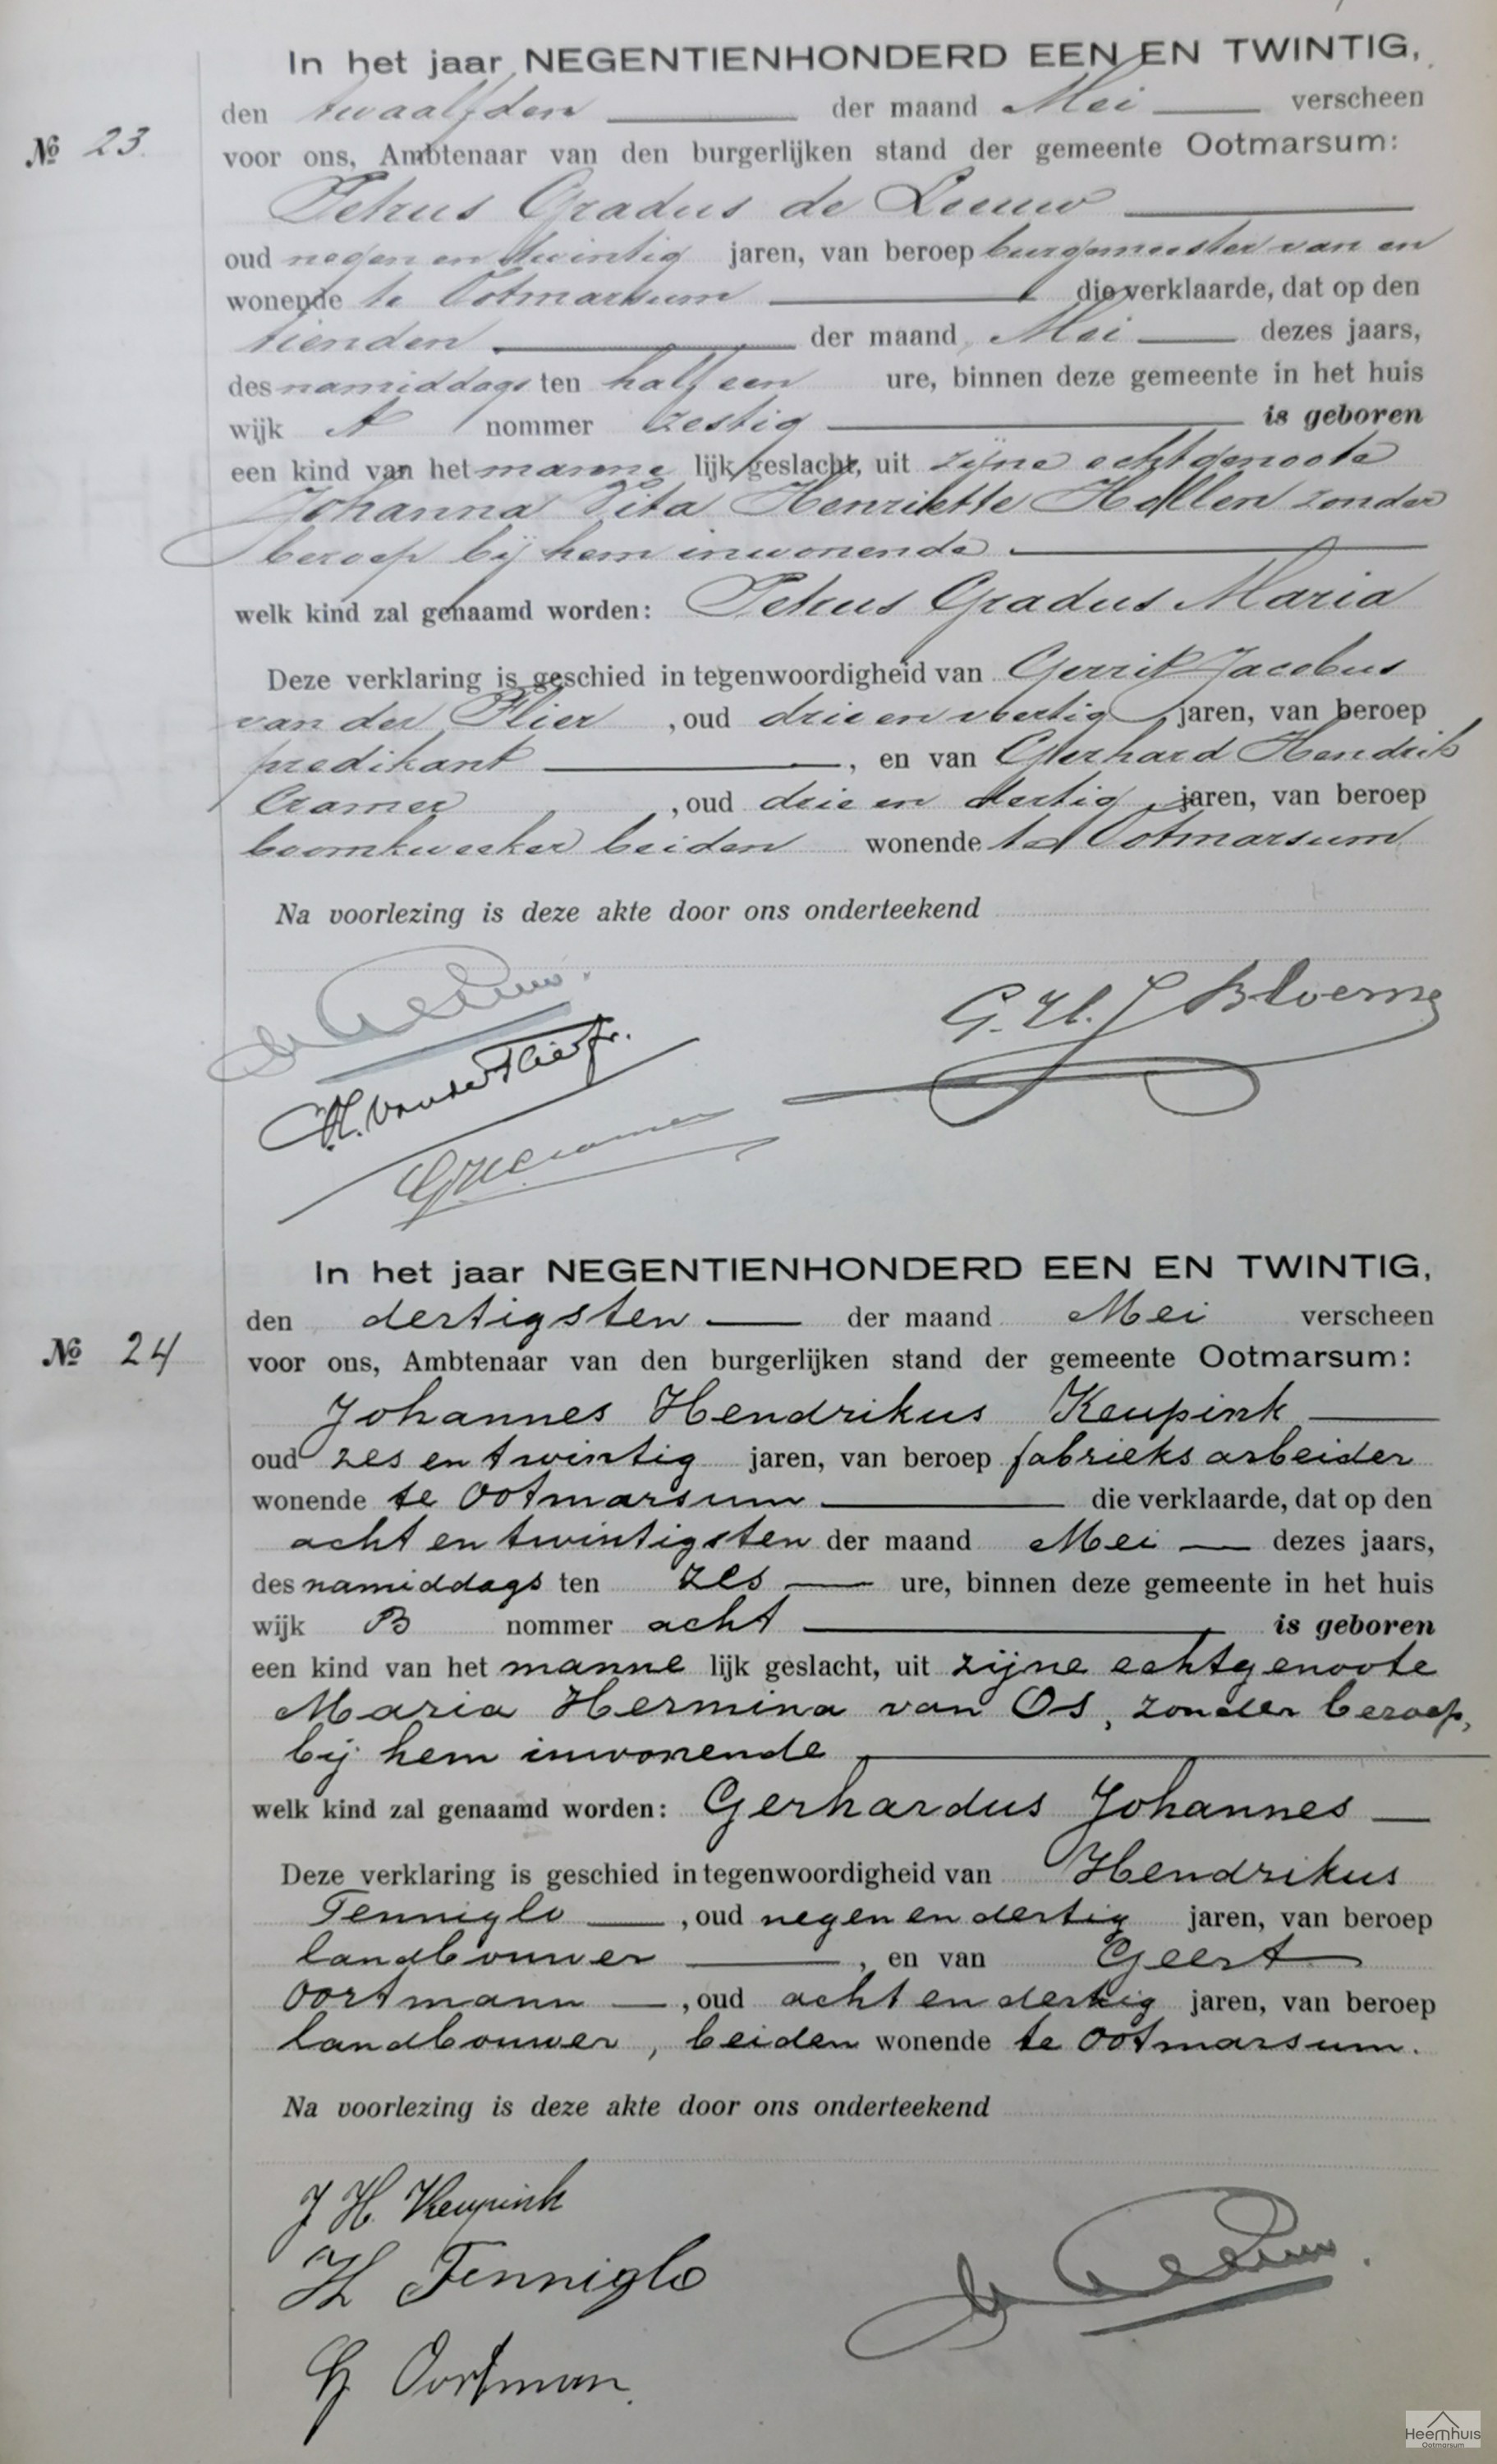 In het jaar NEGENTIENHONDERD EEN EN TWINTIG,
den twaalfden der maand Mei verscheen
№ 23.
voor ons, Ambtenaar van den burgerlijken stand der gemeente Ootmarsum:
Petrus Gradus de Leeuw
oud negen en twintig jaren, van beroep burgemeester van en
wonende te Ootmarsum die verklaarde, dat op den
tienden der maand Mei dezes jaars,
des namiddags ten half een ure, binnen deze gemeente in het huis
wijk A nommer zestig is geboren
een kind van het manne lijk geslacht, uit zijne echtgenoote
Johanna Pita Henriktte Hollen zonder
beroep bij hem inwonende
welk kind zal genaamd worden: Petrus Gradus Maria
Deze verklaring is geschied in tegenwoordigheid van Gerrit Jacobus
van der Flier , oud drie en veertig jaren, van beroep
predikant , en van Gerhard Hendrik
Cramer , oud drie en dertig jaren, van beroep
boomkweeker beiden wonende te Ootmarsum
Na voorlezing is deze akte door ons onderteekend
de Leeuw.
G. H. J Bloemen
v. van der Flier jr.
GHCramer
In het jaar NEGENTIENHONDERD EEN EN TWINTIG,
den dertigsten der maand Mei verscheen
№ 24
voor ons, Ambtenaar van den burgerlijken stand der gemeente Ootmarsum:
Johannes Hendrikus Keupink
oud zes en twintig jaren, van beroep fabrieks arbeider
wonende te Ootmarsum die verklaarde, dat op den
acht en twintigsten der maand Mei dezes jaars,
des namiddags ten zes ure, binnen deze gemeente in het huis
wijk B nommer acht is geboren
een kind van het manne lijk geslacht, uit zijne echtgenoote
Maria Hermina van Os, zonder beroep,
bij hem inwonende
welk kind zal genaamd worden: Gerhardus Johannes
Deze verklaring is geschied in tegenwoordigheid van Hendrikus
Tenniglo , oud negen en dertig jaren, van beroep
landbouwer , en van Geert
Oortmann , oud acht en dertig jaren, van beroep
landbouwer, beiden wonende te Ootmarsum.
Na voorlezing is deze akte door ons onderteekend
J H. Keupink
H Tenniglo
de Leeuw.
G Oortman.
Heemhuis
Ootmarsum